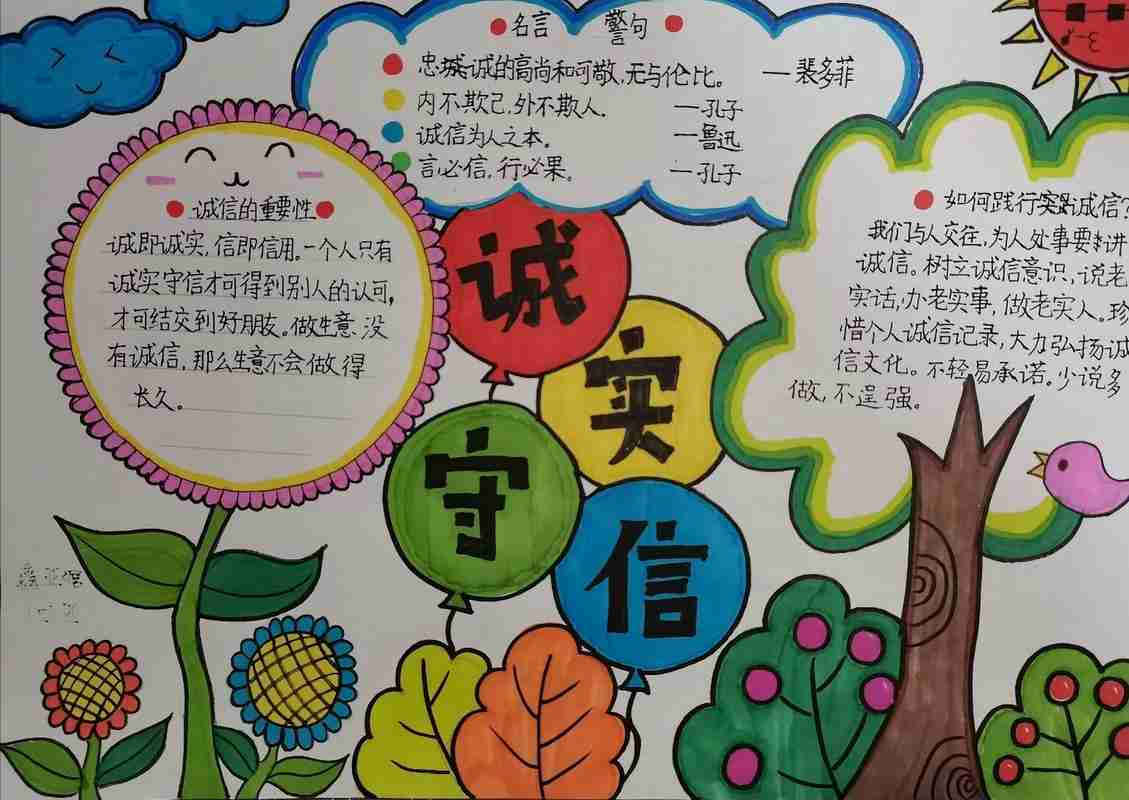 名言 警句
忠诚诚的高尚和可敬，无与伦比。 —裴多菲
内不欺己，外不欺人。 —孔子
诚信为人之本。 —鲁迅
言必信，行必果。 —孔子
诚信的重要性
诚即诚实，信即信用。一个人只有
诚实守信才可得到别人的认可，
才可结交到好朋友。做生意没
有诚信，那么生意不会做得
长久。
诚
实
守
信
如何践行实践诚信？
我们与人交往，为人处事要讲
诚信。树立诚信意识，说老
实话，办老实事，做老实人。珍
惜个人诚信记录，大力弘扬诚
信文化。不轻易承诺。少说多
做，不逞强。